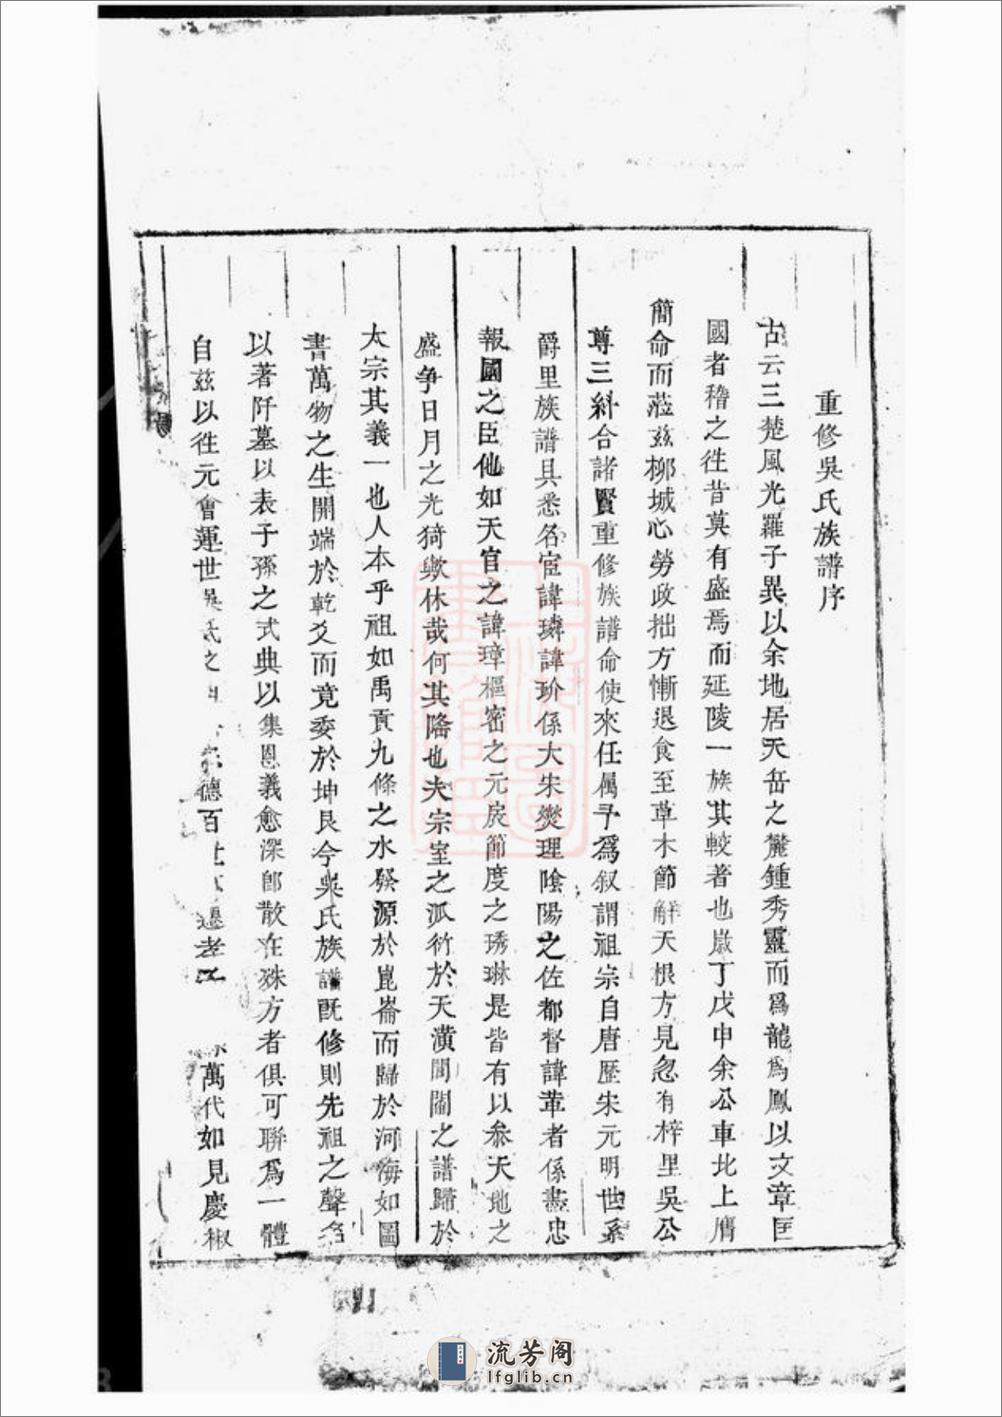 重修吳氏族譜序
古云三楚風光羅子異以余地居天岳之麓鍾秀靈而爲龍爲鳳以文章匡
國者稽之徃昔莫有盛焉而延陵一族其較著也嵗丁戊申余公車北上膺
簡命而蒞兹栁城心勞政拙方慚退食至草木節解天根方見忽有梓里吳公
尊三糾合諸賢重修族譜命使來任属予爲叙謂祖宗自唐歷宋元明世系
爵里族譜具悉名宦諱璘諱玠係大宋爕理陰陽之佐都督諱葦者係盡忠
報國之臣他如天官之諱璋樞密之元戾節度之琇琳是皆有以叅天地之
盛争日月之光猗歟休哉何其隆也夫宗室之派衍於天潢閭閻之譜歸於
太宗其義一也人本乎祖如禹貢九條之水發源於崑崙而歸於河海如圖
書萬物之生開端於乾爻而竟委於坤艮今吳氏族譜既修則先祖之聲名
以著阡墓以表子孫之式典以集恩義愈深卽散在殊方者俱可聯爲一體
自兹以徃元會運世吳氏之德百世老萬代如見慶椒
流芳阁
lfglib.cn